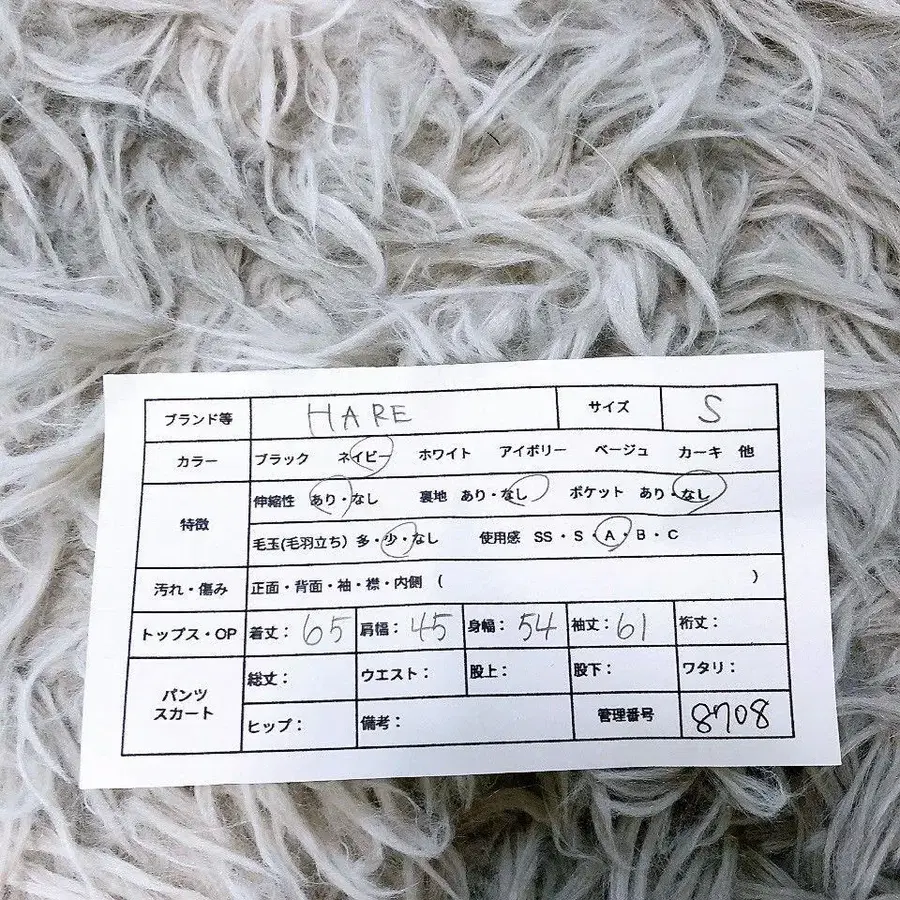 ブランド等 HARE サイズ S
カラー ブラック ネイビー ホワイト アイボリー ベージュ カーキ 他
特徴 伸縮性 あり・なし 裏地 あり・なし ポケット あり・なし
毛玉(毛羽立ち) 多・少・なし 使用感 SS・S・A・B・C
汚れ・傷み 正面・背面・袖・襟・内側 ( )
トップス・OP 着丈: 65 肩幅: 45 身幅: 54 袖丈: 61 裄丈:
パンツ スカート 総丈: ウエスト: 股上: 股下: ワタリ:
ヒップ: 備考: 管理番号 8708